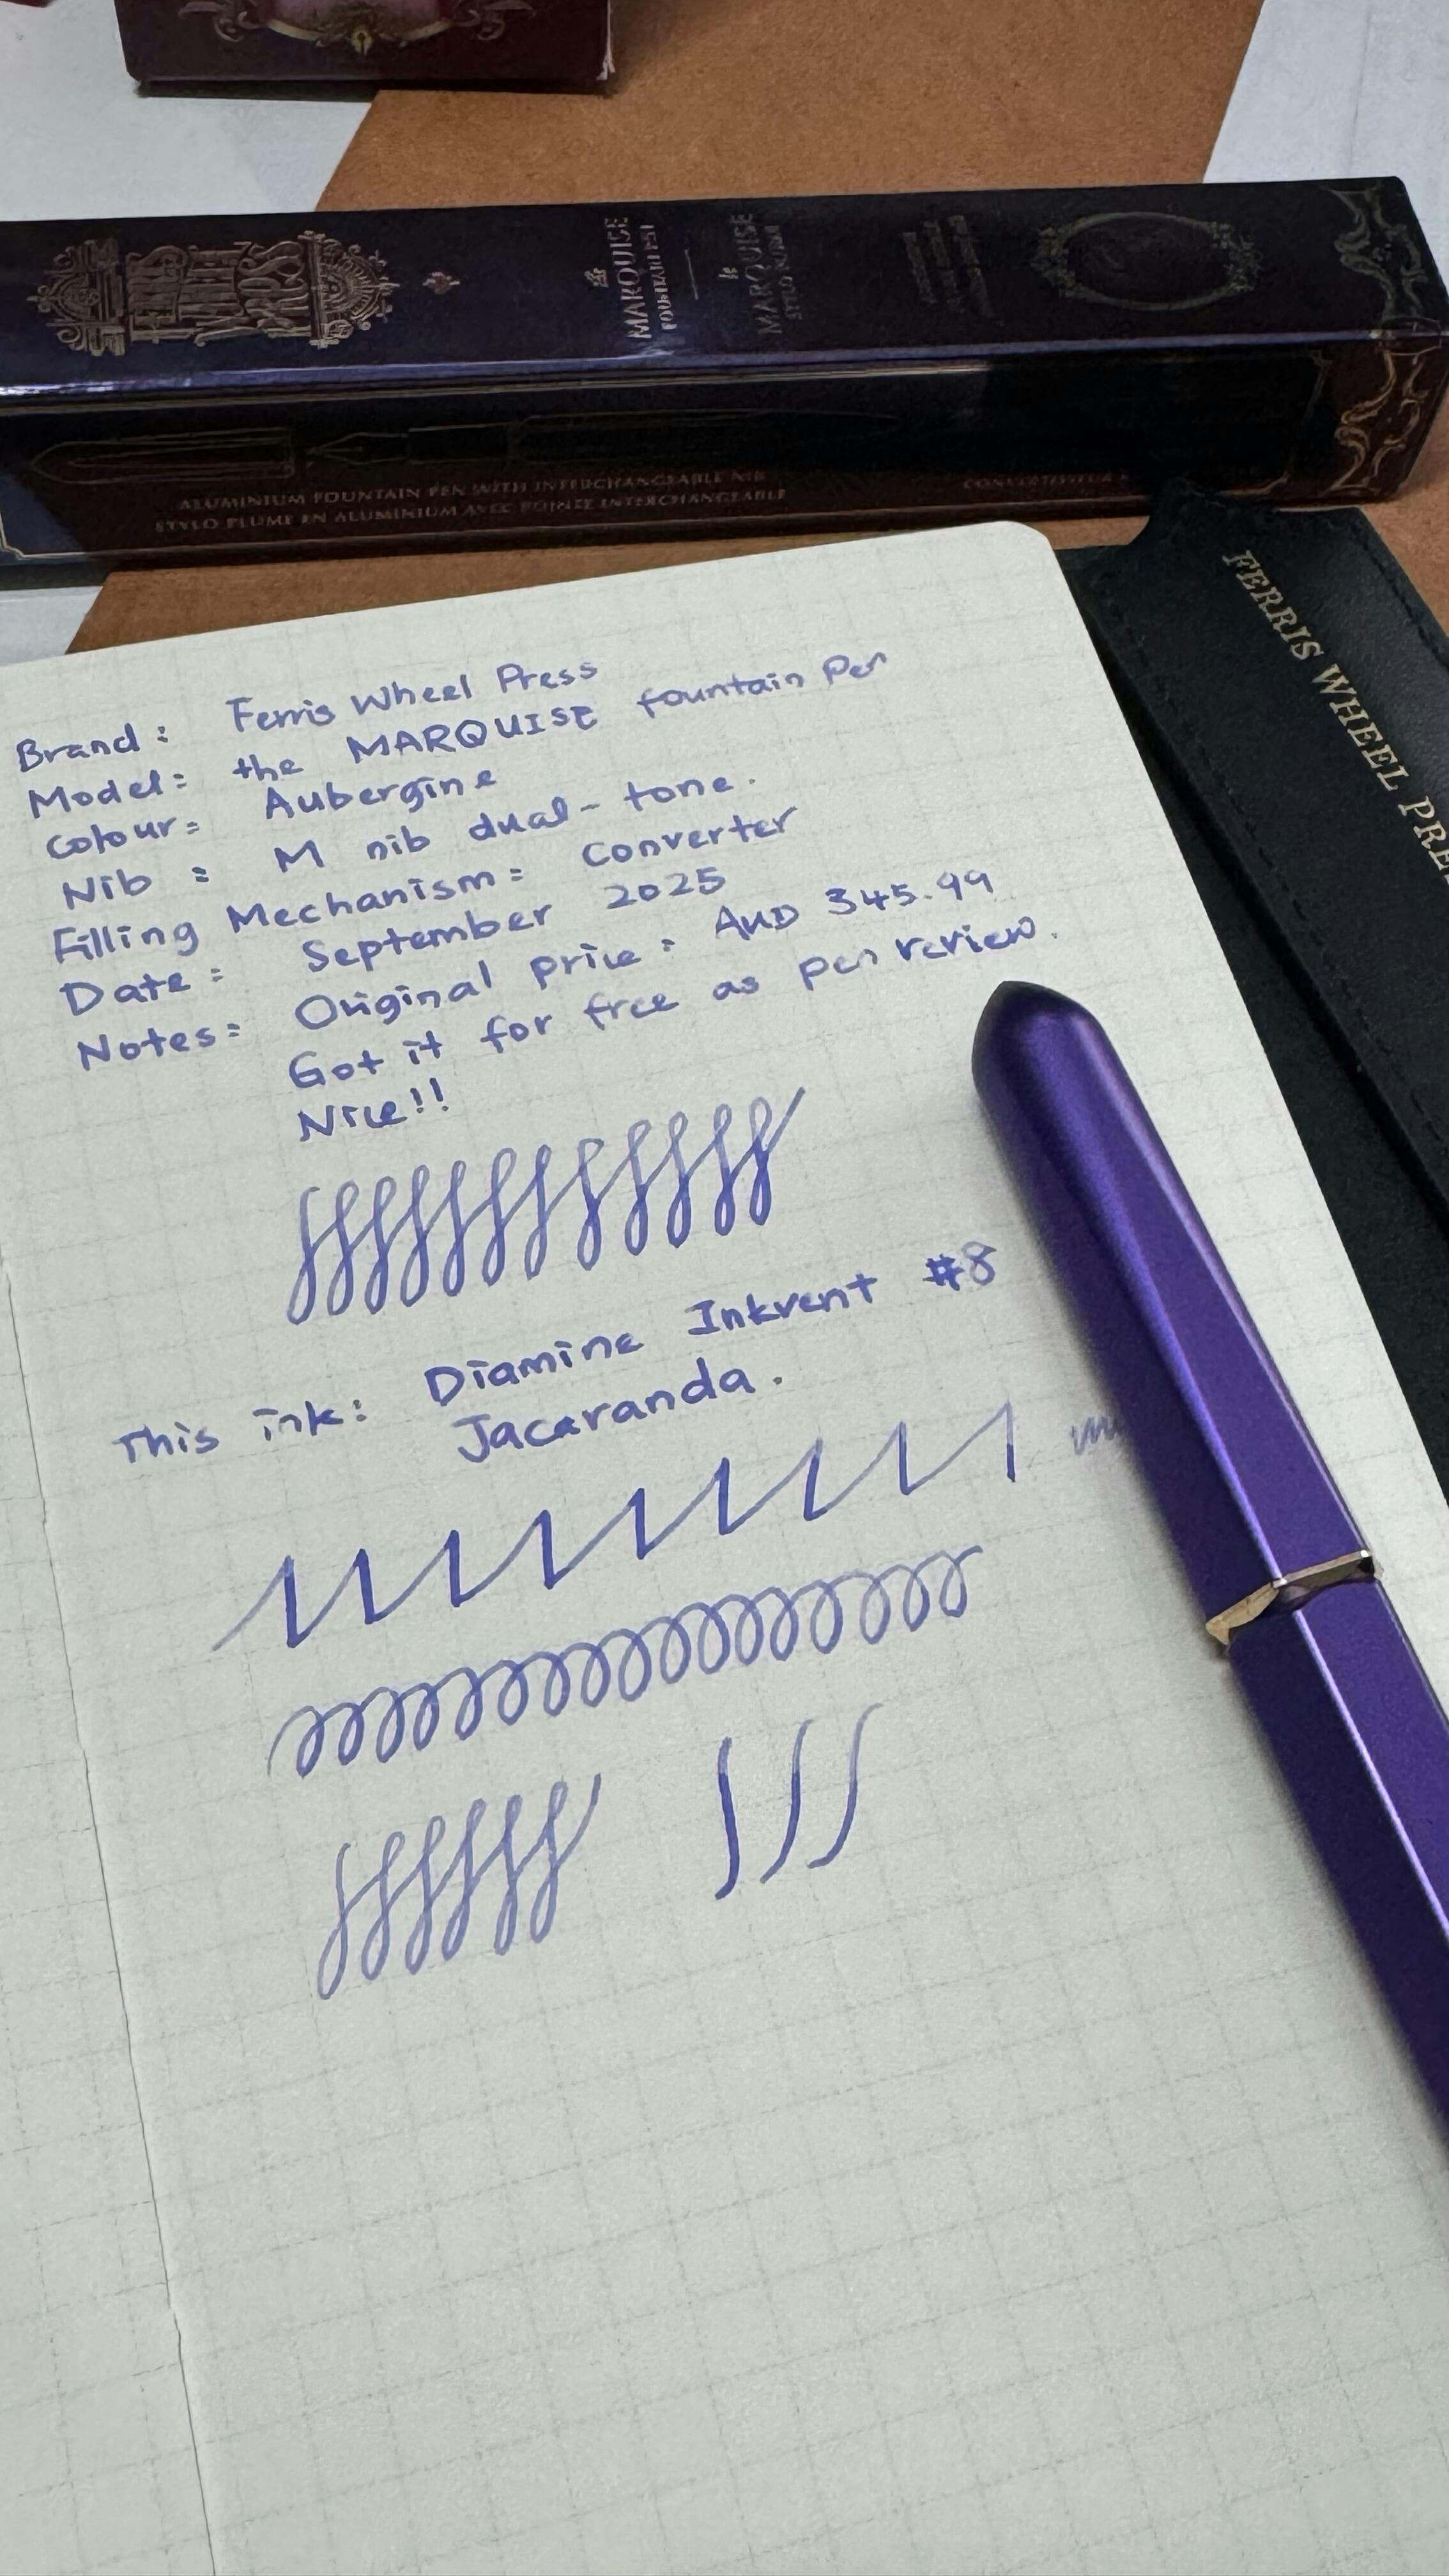 FERRIS WHEEL PRESS
the
MARQUISE
FOUNTAIN PEN
MARQUISE
ALUMINIUM FOUNTAIN PEN WITH INTERCHANGEABLE NIB
STYLO PLUME EN ALUMINIUM AVEC POINTE INTERCHANGEABLE
FERRIS WHEEL PRE
Brand: Ferris Wheel Press
Model: the MARQUISE fountain Pen
Colour: Aubergine
Nib: M nib dual-tone.
Filling Mechanism: Converter
Date: September 2025
Notes: Original price: AUD 345.99
Got it for free as pen review.
Nice!!
This ink: Diamine Inkvent #8
Jacaranda.